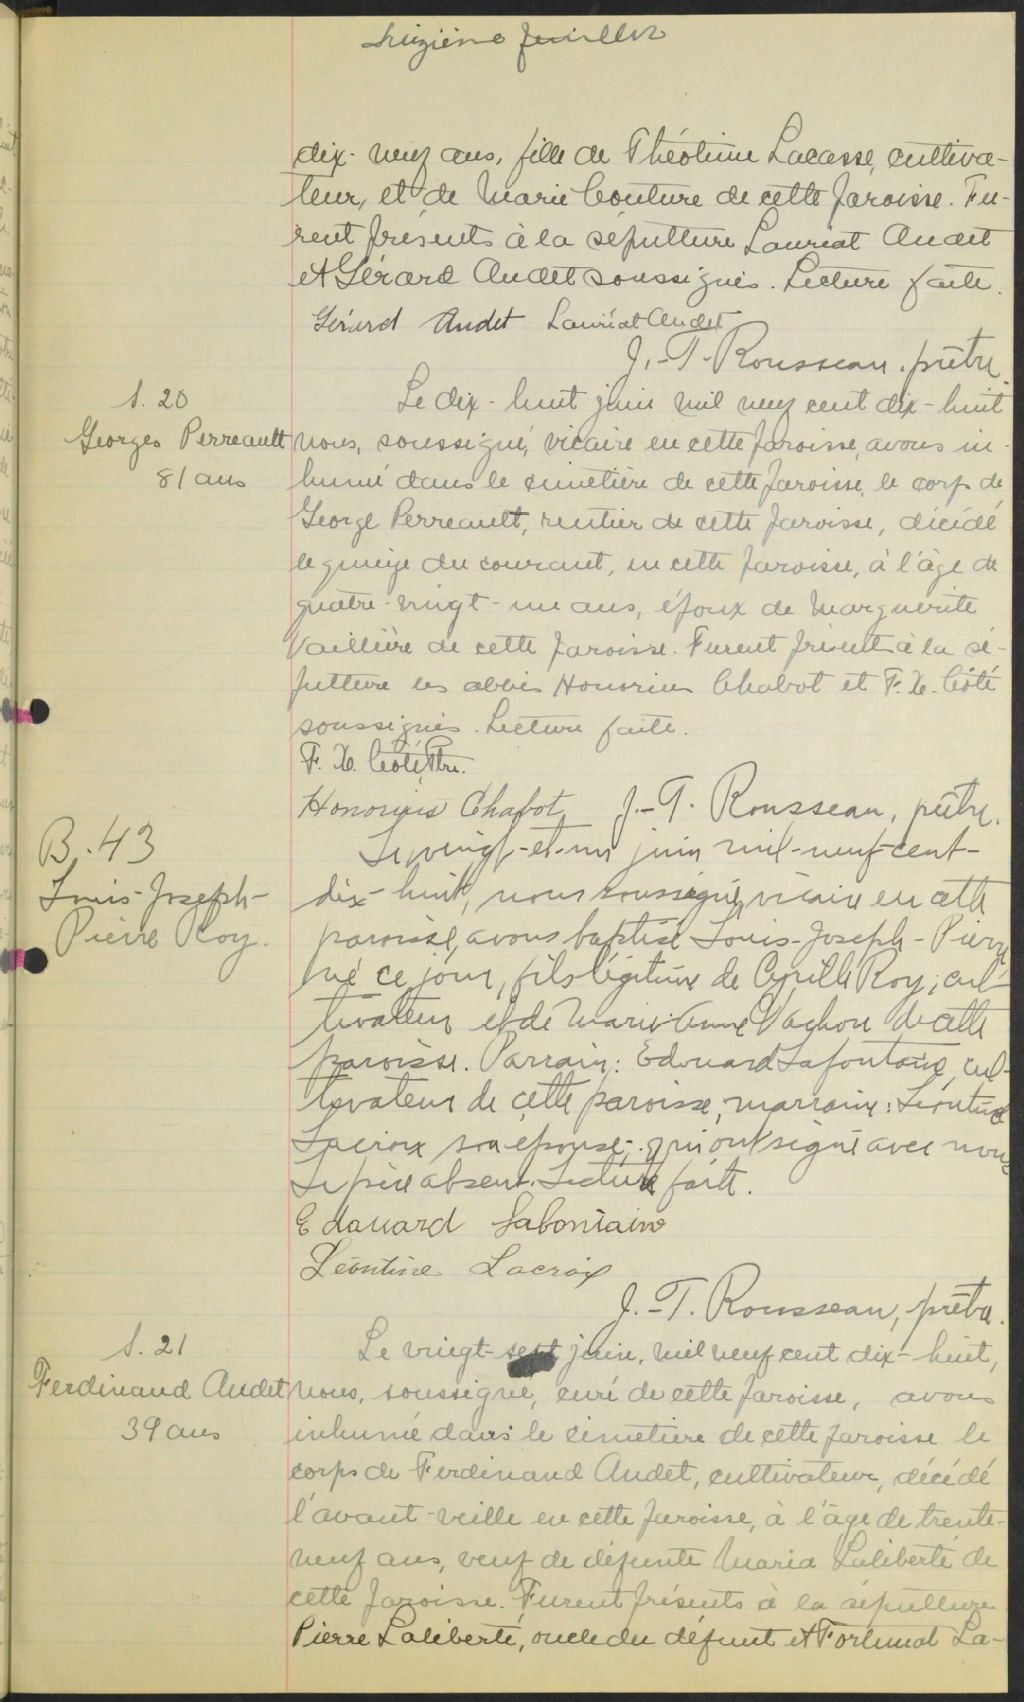 feuillet
dix-neuf ans, fille de Théotime Lacasse, cultiva-
teur, et de Marie Couture de cette paroisse. Fu-
rent présents à la sépulture Lauréat Audet
et Gérard Audet soussignés. Lecture faite.
Gérard Audet Lauréat Audet
J.-T. Rousseau, prêtre.
S. 20
Georges Perreault
81 ans
Le dix-huit juin mil neuf cent dix-huit
nous, soussigné, vicaire en cette paroisse, avons in-
humé dans le cimetière de cette paroisse, le corps de
George Perreault, rentier de cette paroisse, décédé
le quinze du courant, en cette paroisse, à l'âge de
quatre-vingt-un ans, époux de Marguerite
Vaillière de cette paroisse. Furent présents à la sé-
pulture les abbés Honorius Chabot et F. X. Côté
soussignés. Lecture faite.
F. X. Côté, Ptre.
Honorius Chabot J.-T. Rousseau, prêtre.
B. 43
Louis-Joseph-
Pierre Roy.
Le vingt-et-un juin mil-neuf-cent-
dix-huit, nous soussigné, vicaire en cette
paroisse, avons baptisé Louis-Joseph-Pierre
né ce jour, fils légitime de Cyrille Roy, cul-
tivateur et de Marie-Anne Vachon de cette
paroisse. Parrain: Edouard Lafontaine, cul-
tivateur de cette paroisse; marraine: Léontine
Lacroix son épouse; qui ont signé avec nous
Le père absent. Lecture faite.
Edouard Lafontaine
Léontine Lacroix
J.-T. Rousseau, prêtre.
S. 21
Ferdinand Audet
39 ans
Le vingt-sept juin, mil neuf cent dix-huit,
nous, soussigné, curé de cette paroisse, avons
inhumé dans le cimetière de cette paroisse le
corps de Ferdinand Audet, cultivateur, décédé
l'avant-veille en cette paroisse, à l'âge de trente-
neuf ans, veuf de défunte Maria Laliberté de
cette paroisse. Furent présents à la sépulture
Pierre Laliberté, oncle du défunt et Fortunat La-